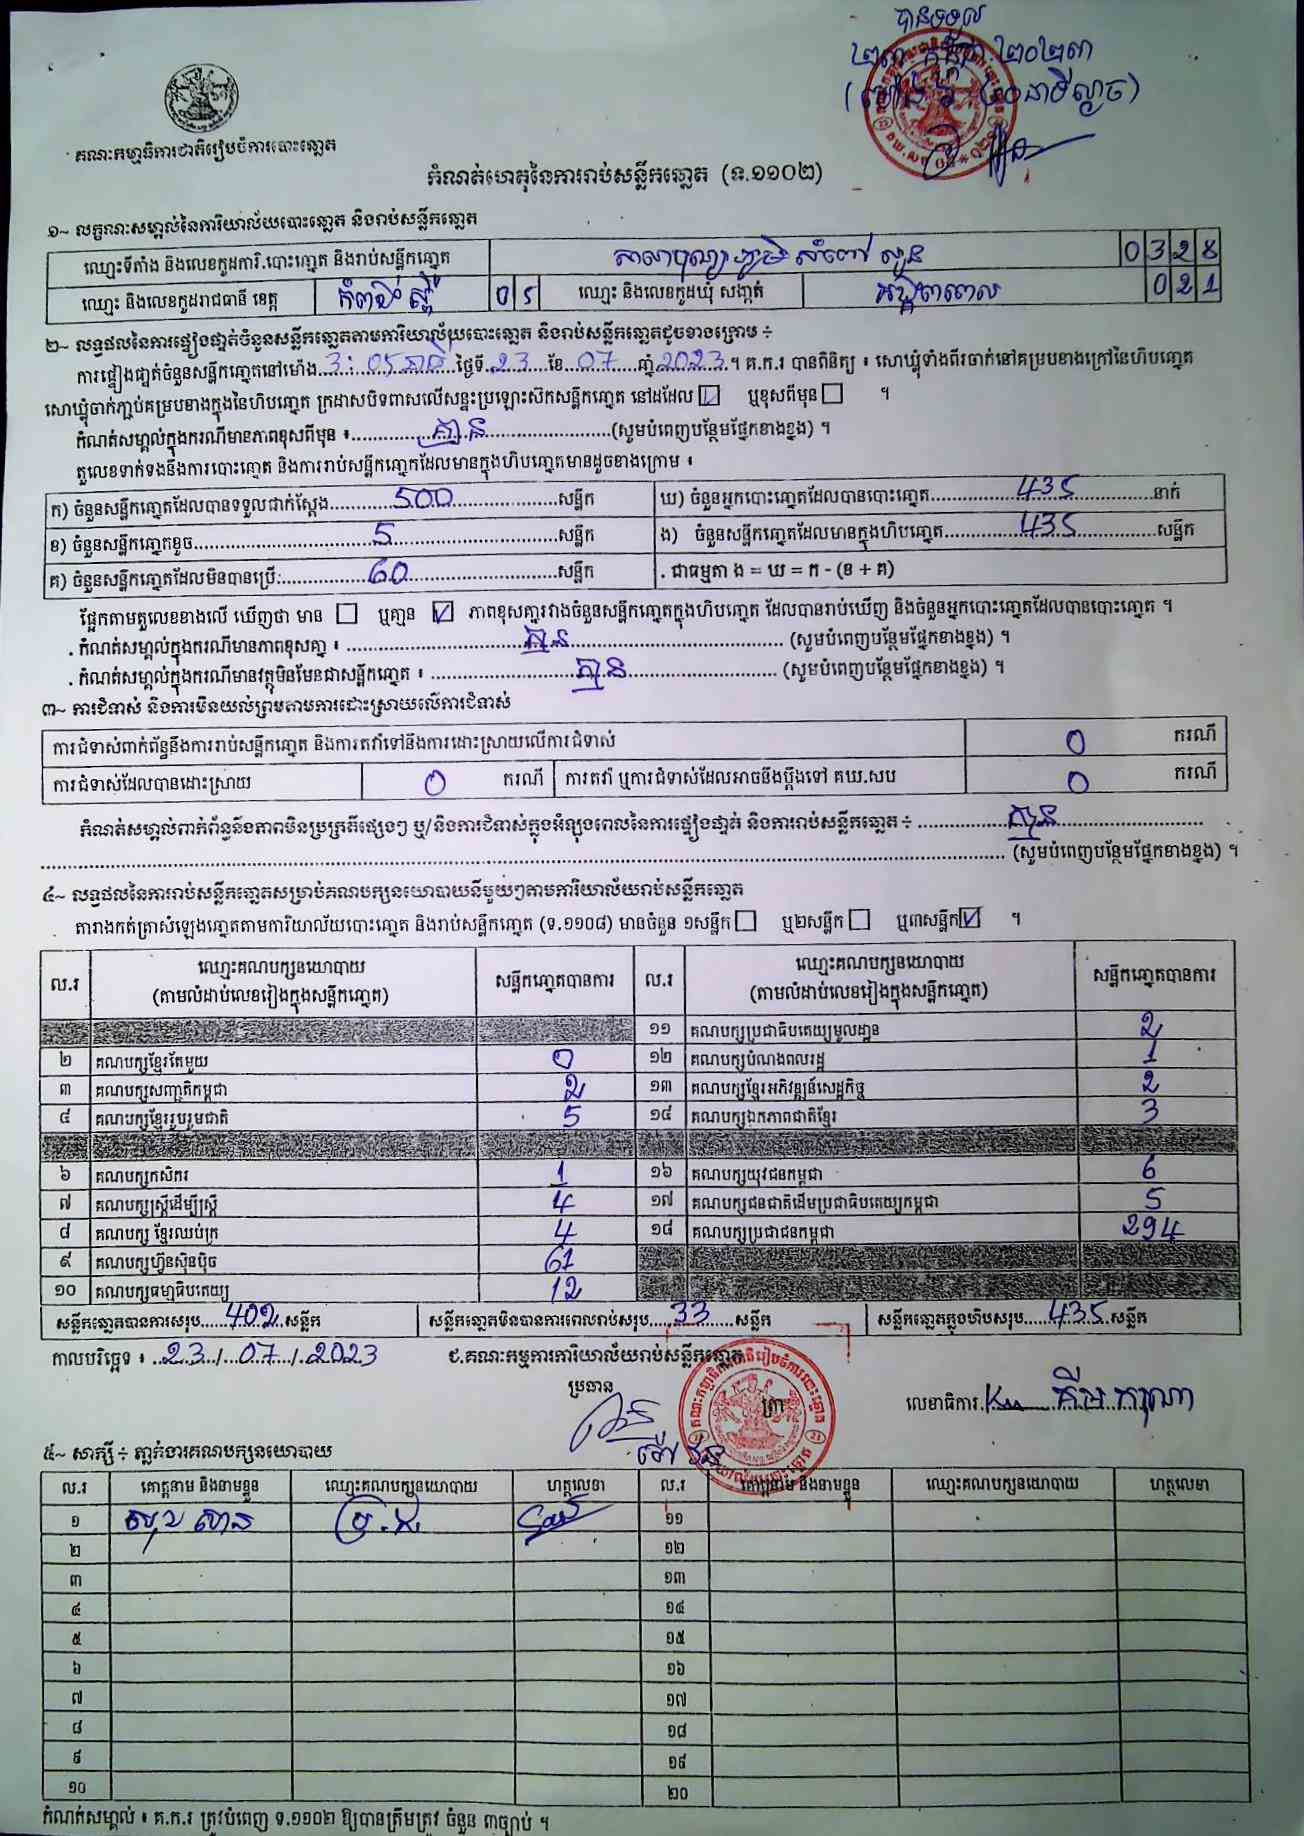 បានទទួល
២៣ កក្កដា ២០២៣
គណៈកម្មាធិការជាតិរៀបចំការបោះឆ្នោត
កំណត់ហេតុនៃការរាប់សន្លឹកឆ្នោត (ទ.១១០២)
១~ លក្ខណៈសម្គាល់នៃការិយាល័យបោះឆ្នោត និងរាប់សន្លឹកឆ្នោត
ឈ្មោះទីតាំង និងលេខកូដការិ.បោះឆ្នោត និងរាប់សន្លឹកឆ្នោត សាលាបុណ្យ ភូមិ សំពៅ លូន 0328
ឈ្មោះ និងលេខកូដរាជធានី ខេត្ត កំពង់ស្ពឺ 05 ឈ្មោះ និងលេខកូដឃុំ សង្កាត់ 021
២~ លទ្ធផលនៃការផ្ទៀងផ្ទាត់ចំនួនសន្លឹកឆ្នោតតាមការិយាល័យបោះឆ្នោត និងរាប់សន្លឹកឆ្នោតដូចខាងក្រោម ៖
ការផ្ទៀងផ្ទាត់ចំនួនសន្លឹកឆ្នោតនៅម៉ោង 3:05 នាទី ថ្ងៃទី 23 ខែ 07 ឆ្នាំ 2023 ។ គ.ក.រ បានពិនិត្យ ៖ សោឃ្លុំទាំងពីរចាក់នៅគម្របខាងក្រៅនៃហិបឆ្នោត
សោឃ្លុំចាក់ភ្ជាប់គម្របខាងក្នុងនៃហិបឆ្នោត ក្រដាសបិទពាសលើសន្ទះប្រឡោះស៊កសន្លឹកឆ្នោត នៅដដែល ☑ ឬខុសពីមុន ☐ ។
កំណត់សម្គាល់ក្នុងករណីមានភាពខុសពីមុន ៖ គ្មាន (សូមបំពេញបន្ថែមផ្នែកខាងខ្នង) ។
តួលេខទាក់ទងនឹងការបោះឆ្នោត និងការរាប់សន្លឹកឆ្នោតដែលមានក្នុងហិបឆ្នោតមានដូចខាងក្រោម ៖
ក) ចំនួនសន្លឹកឆ្នោតដែលបានទទួលជាក់ស្តែង 500 សន្លឹក ឃ) ចំនួនអ្នកបោះឆ្នោតដែលបានបោះឆ្នោត 435 នាក់
ខ) ចំនួនសន្លឹកឆ្នោតខូច 5 សន្លឹក ង) ចំនួនសន្លឹកឆ្នោតដែលមានក្នុងហិបឆ្នោត 435 សន្លឹក
គ) ចំនួនសន្លឹកឆ្នោតដែលមិនបានប្រើ: 60 សន្លឹក . ជាធម្មតា ង = ឃ = ក - (ខ + គ)
ផ្អែកតាមតួលេខខាងលើ ឃើញថា មាន ☐ ឬគ្មាន ☑ ភាពខុសគ្នារវាងចំនួនសន្លឹកឆ្នោតក្នុងហិបឆ្នោត ដែលបានរាប់ឃើញ និងចំនួនអ្នកបោះឆ្នោតដែលបានបោះឆ្នោត ។
. កំណត់សម្គាល់ក្នុងករណីមានភាពខុសគ្នា ៖ គ្មាន (សូមបំពេញបន្ថែមផ្នែកខាងខ្នង) ។
. កំណត់សម្គាល់ក្នុងករណីមានវត្ថុមិនមែនជាសន្លឹកឆ្នោត ៖ គ្មាន (សូមបំពេញបន្ថែមផ្នែកខាងខ្នង) ។
៣~ ការជំទាស់ និងការមិនយល់ព្រមតាមការដោះស្រាយលើការជំទាស់
ការជំទាស់ពាក់ព័ន្ធនឹងការរាប់សន្លឹកឆ្នោត និងការតវ៉ាទៅនឹងការដោះស្រាយលើការជំទាស់ 0 ករណី
ការជំទាស់ដែលបានដោះស្រាយ 0 ករណី ការតវ៉ា ឬការជំទាស់ដែលអាចនឹងប្តឹងទៅ គឃ.សប 0 ករណី
កំណត់សម្គាល់ពាក់ព័ន្ធនឹងភាពមិនប្រក្រតីផ្សេងៗ ឬ/និងការជំទាស់ក្នុងអំឡុងពេលនៃការផ្ទៀងផ្ទាត់ និងការរាប់សន្លឹកឆ្នោត ៖ គ្មាន
(សូមបំពេញបន្ថែមផ្នែកខាងខ្នង) ។
៤~ លទ្ធផលនៃការរាប់សន្លឹកឆ្នោតសម្រាប់គណបក្សនយោបាយនីមួយៗតាមការិយាល័យរាប់សន្លឹកឆ្នោត
តារាងកត់ត្រាសំឡេងឆ្នោតតាមការិយាល័យបោះឆ្នោត និងរាប់សន្លឹកឆ្នោត (ទ.១១០៨) មានចំនួន ១សន្លឹក ☐ ឬ២សន្លឹក ☐ ឬ៣សន្លឹក ☑ ។
ល.រ ឈ្មោះគណបក្សនយោបាយ (តាមលំដាប់លេខរៀងក្នុងសន្លឹកឆ្នោត) សន្លឹកឆ្នោតបានការ ល.រ ឈ្មោះគណបក្សនយោបាយ (តាមលំដាប់លេខរៀងក្នុងសន្លឹកឆ្នោត) សន្លឹកឆ្នោតបានការ
១១ គណបក្សប្រជាធិបតេយ្យមូលដ្ឋាន 2
២ គណបក្សខ្មែរតែមួយ 0 ១២ គណបក្សបំណងពលរដ្ឋ 1
៣ គណបក្សសញ្ជាតិកម្ពុជា 2 ១៣ គណបក្សខ្មែរអភិវឌ្ឍន៍សេដ្ឋកិច្ច 2
៤ គណបក្សខ្មែររួបរួមជាតិ 5 ១៤ គណបក្សឯកភាពជាតិខ្មែរ 3
៦ គណបក្សកសិករ 1 ១៦ គណបក្សយុវជនកម្ពុជា 6
៧ គណបក្សស្ត្រីដើម្បីស្ត្រី 4 ១៧ គណបក្សជនជាតិដើមប្រជាធិបតេយ្យកម្ពុជា 5
៨ គណបក្ស ខ្មែរឈប់ក្រ 4 ១៨ គណបក្សប្រជាជនកម្ពុជា 294
៩ គណបក្សហ៊្វុនស៊ិនប៉ិច 61
១០ គណបក្សធម្មាធិបតេយ្យ 12
សន្លឹកឆ្នោតបានការសរុប 402 សន្លឹក សន្លឹកឆ្នោតមិនបានការពេលរាប់សរុប 33 សន្លឹក សន្លឹកឆ្នោតក្នុងហិបសរុប 435 សន្លឹក
កាលបរិច្ឆេទ ៖ 23/07/2023 ជ.គណៈកម្មការការិយាល័យរាប់សន្លឹកឆ្នោត
ប្រធាន ត្រា លេខាធិការ គីម ករុណា
៥~ សាក្សី ៖ ភ្នាក់ងារគណបក្សនយោបាយ
ល.រ គោត្តនាម និងនាមខ្លួន ឈ្មោះគណបក្សនយោបាយ ហត្ថលេខា ល.រ គោត្តនាម និងនាមខ្លួន ឈ្មោះគណបក្សនយោបាយ ហត្ថលេខា
១ ១១
២ ១២
៣ ១៣
៤ ១៤
៥ ១៥
៦ ១៦
៧ ១៧
៨ ១៨
៩ ១៩
១០ ២០
កំណត់សម្គាល់ ៖ គ.ក.រ ត្រូវបំពេញ ទ.១១០២ ឱ្យបានត្រឹមត្រូវ ចំនួន ៣ច្បាប់ ។